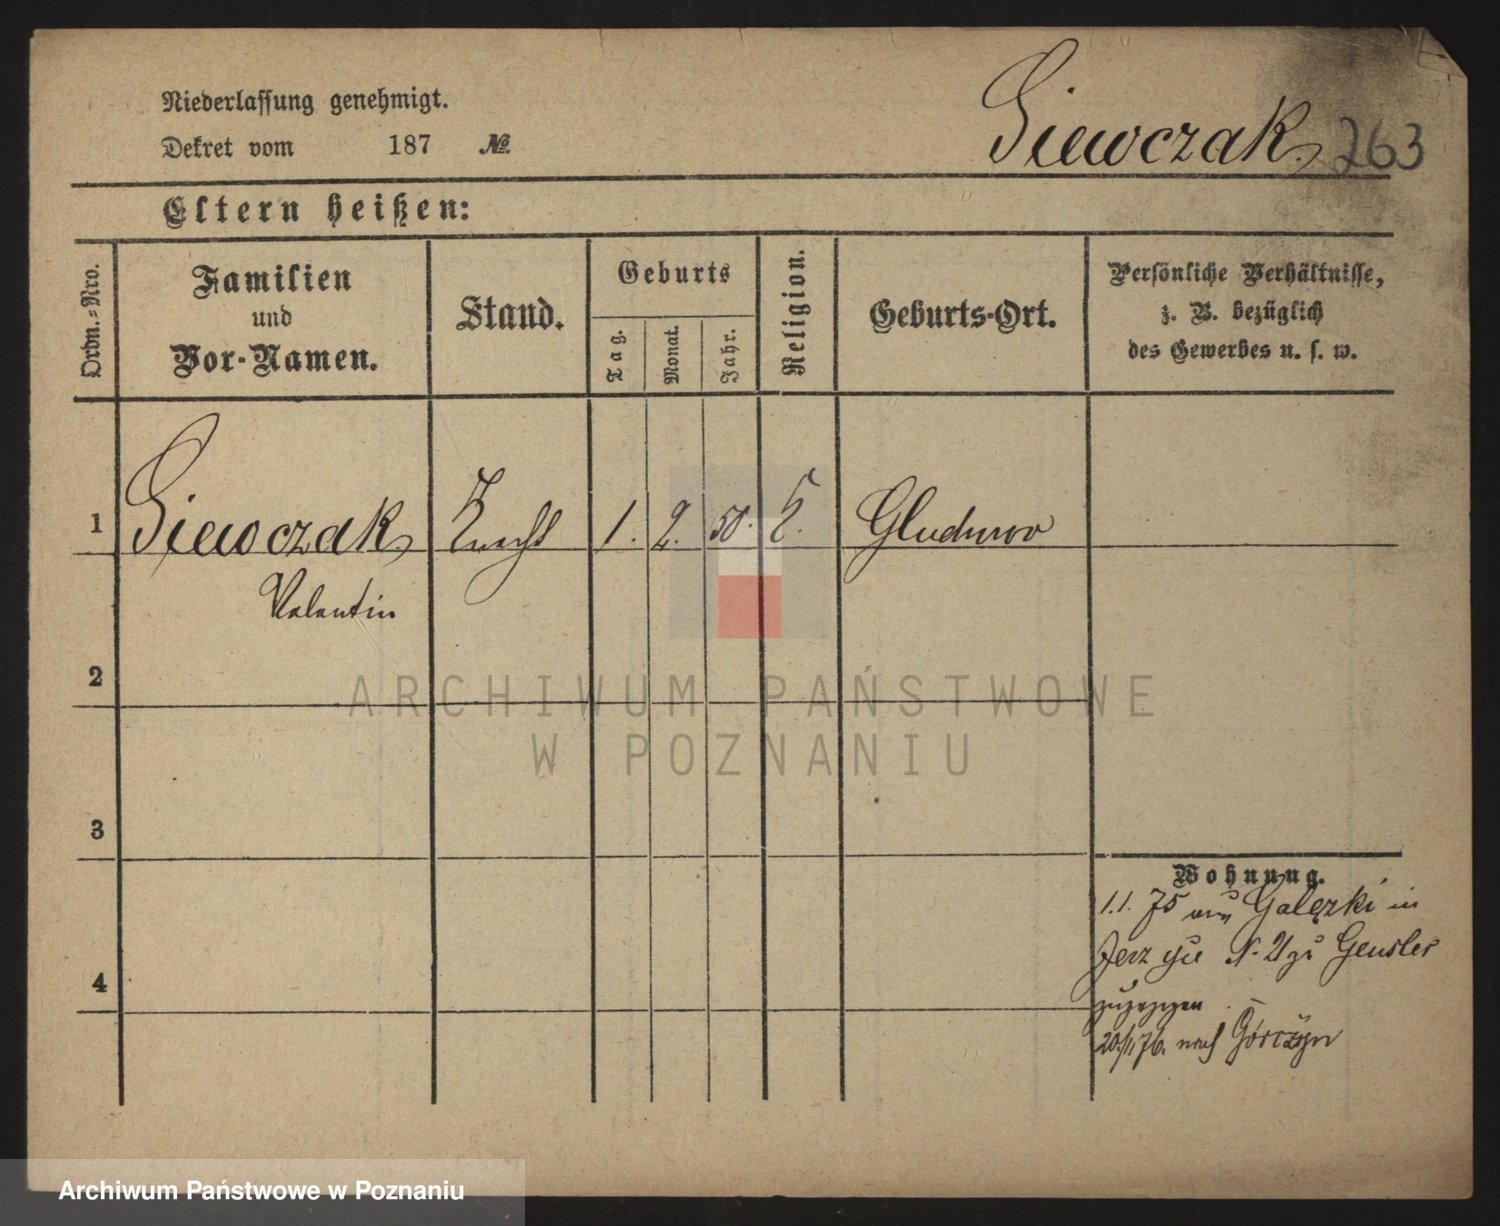 Niederlassung genehmigt.
Siewczak 263
Dekret vom 187 №.
Eltern heißen:
Ordn.-Nro.
Familien
und
Vor-Namen.
Stand.
Geburts
Tag.
Monat.
Jahr.
Religion.
Geburts-Ort.
Persönliche Verhältnisse,
z. B. bezüglich
des Gewerbes u. s. w.
1 Siewczak Knecht 1. 2. 50. K. Gluchowo
Valentin
2
3
4
Wohnung.
1.1. 75 aus Galęzki in
N. 21 zu Gensler
zugezogen
nach Górczyn
ARCHIWUM PAŃSTWOWE
W POZNANIU
Archiwum Państwowe w Poznaniu